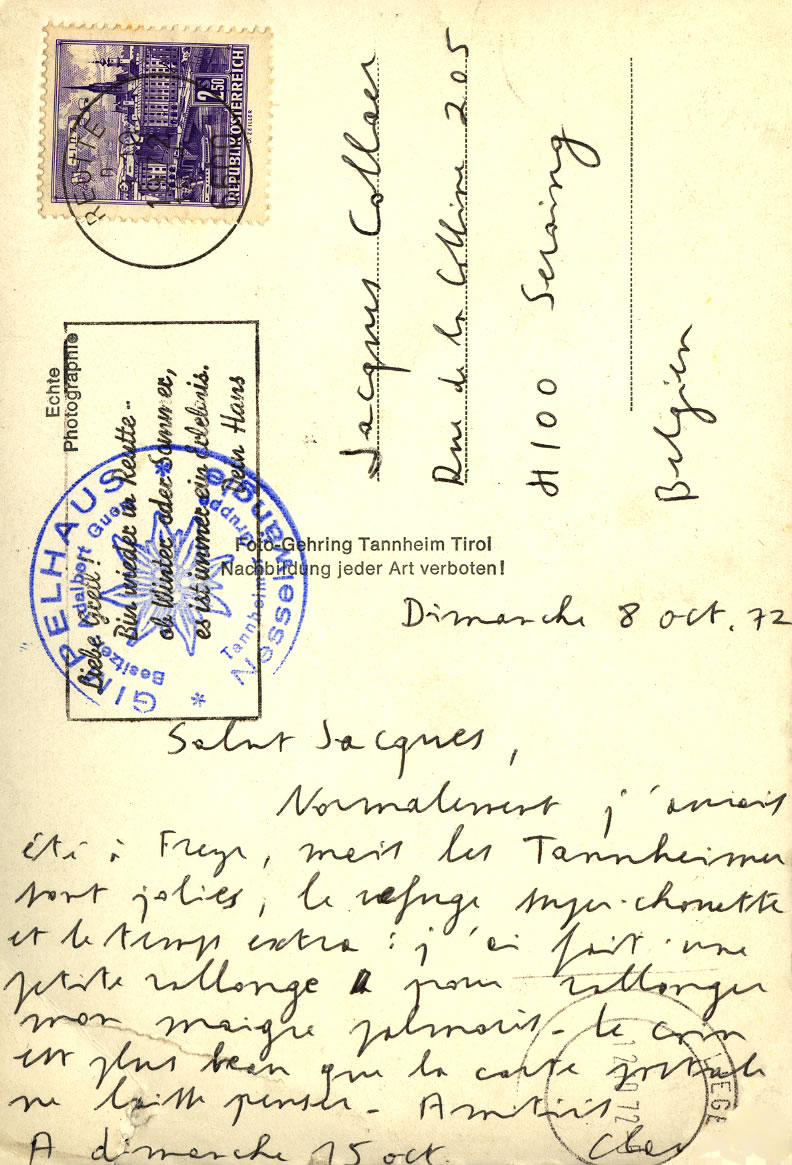 REPUBLIK ÖSTERREICH
2S50
REUTTE
6600
Jacques Collaer
Rue de la Colline 205
4100 Seraing
Belgien
Echte
Photographie
Liebe Gretl!
Bin wieder in Reutte -
ob Winter oder Sommer,
es ist immer ein Erlebnis.
Dein Hans
GIMPELHAUS
Nesselwängle
Besitzer Adalbert Guem
Tannheimer Gruppe
Foto-Gehring Tannheim Tirol
Nachbildung jeder Art verboten!
Dimanche 8 oct. 72
Salut Jacques,
Normalement j'aurais
été à Freyr, mais les Tannheimer
sont jolies, le refuge super-chouette
et le temps extra : j'ai fait une
petite rallonge pour rallonger
mon maigre palmarès - le coin
est plus beau que la carte postale
ne laisse penser - Amitiés
A dimanche 15 oct.
LIEGE